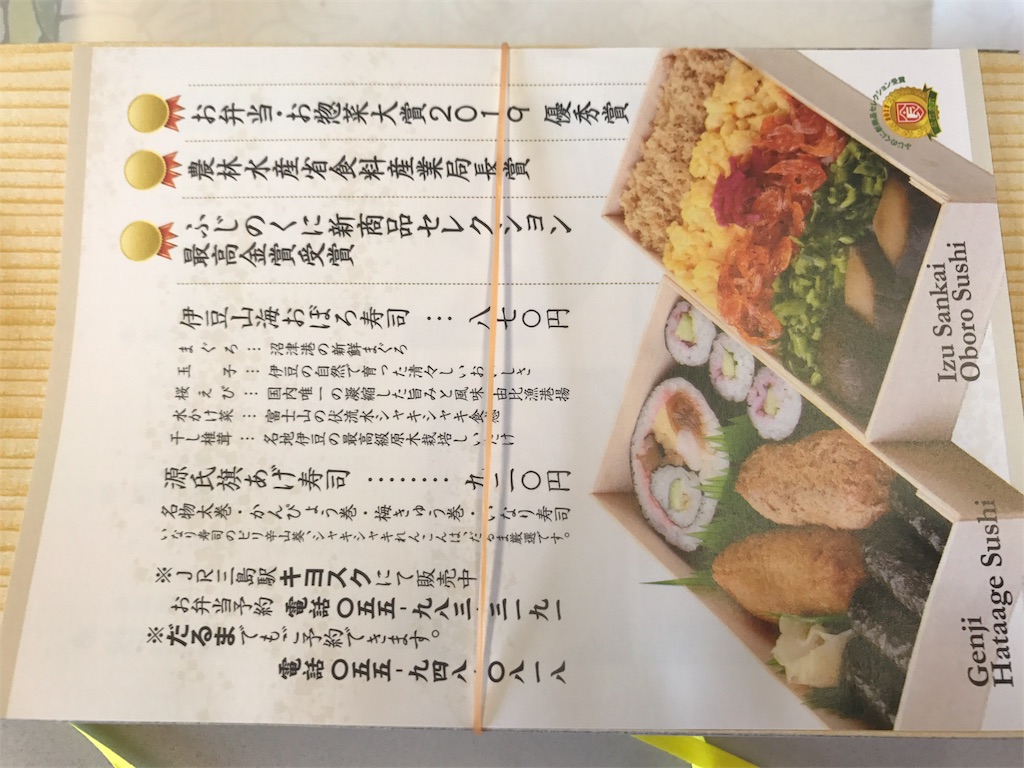 お弁当・お惣菜大賞2019 優秀賞
農林水産省食料産業局長賞
ふじのくに新商品セレクション
最高金賞受賞
伊豆山海おぼろ寿司 … 八七〇円
まぐろ … 沼津港の新鮮まぐろ
玉子 … 伊豆の自然で育った清々しいおいしさ
桜えび … 国内唯一の凝縮した旨みと風味 由比漁港揚
水かけ菜 … 富士山の伏流水シャキシャキ食感
干し椎茸 … 名地伊豆の最高級原木栽培しいたけ
源氏旗あげ寿司 ……… 九二〇円
名物太巻・かんぴょう巻・梅きゅう巻・いなり寿司
いなり寿司のピリ辛山葵、シャキシャキれんこんは、だるま厳選です。
※JR三島駅キヨスクにて販売中
お弁当予約 電話〇五五-九八三-三一九一
※だるまでもご予約できます。
電話〇五五-九四八-〇八一八
ふじのくに新商品セレクション受賞
Izu Sankai
Oboro Sushi
Genji
Hataage Sushi